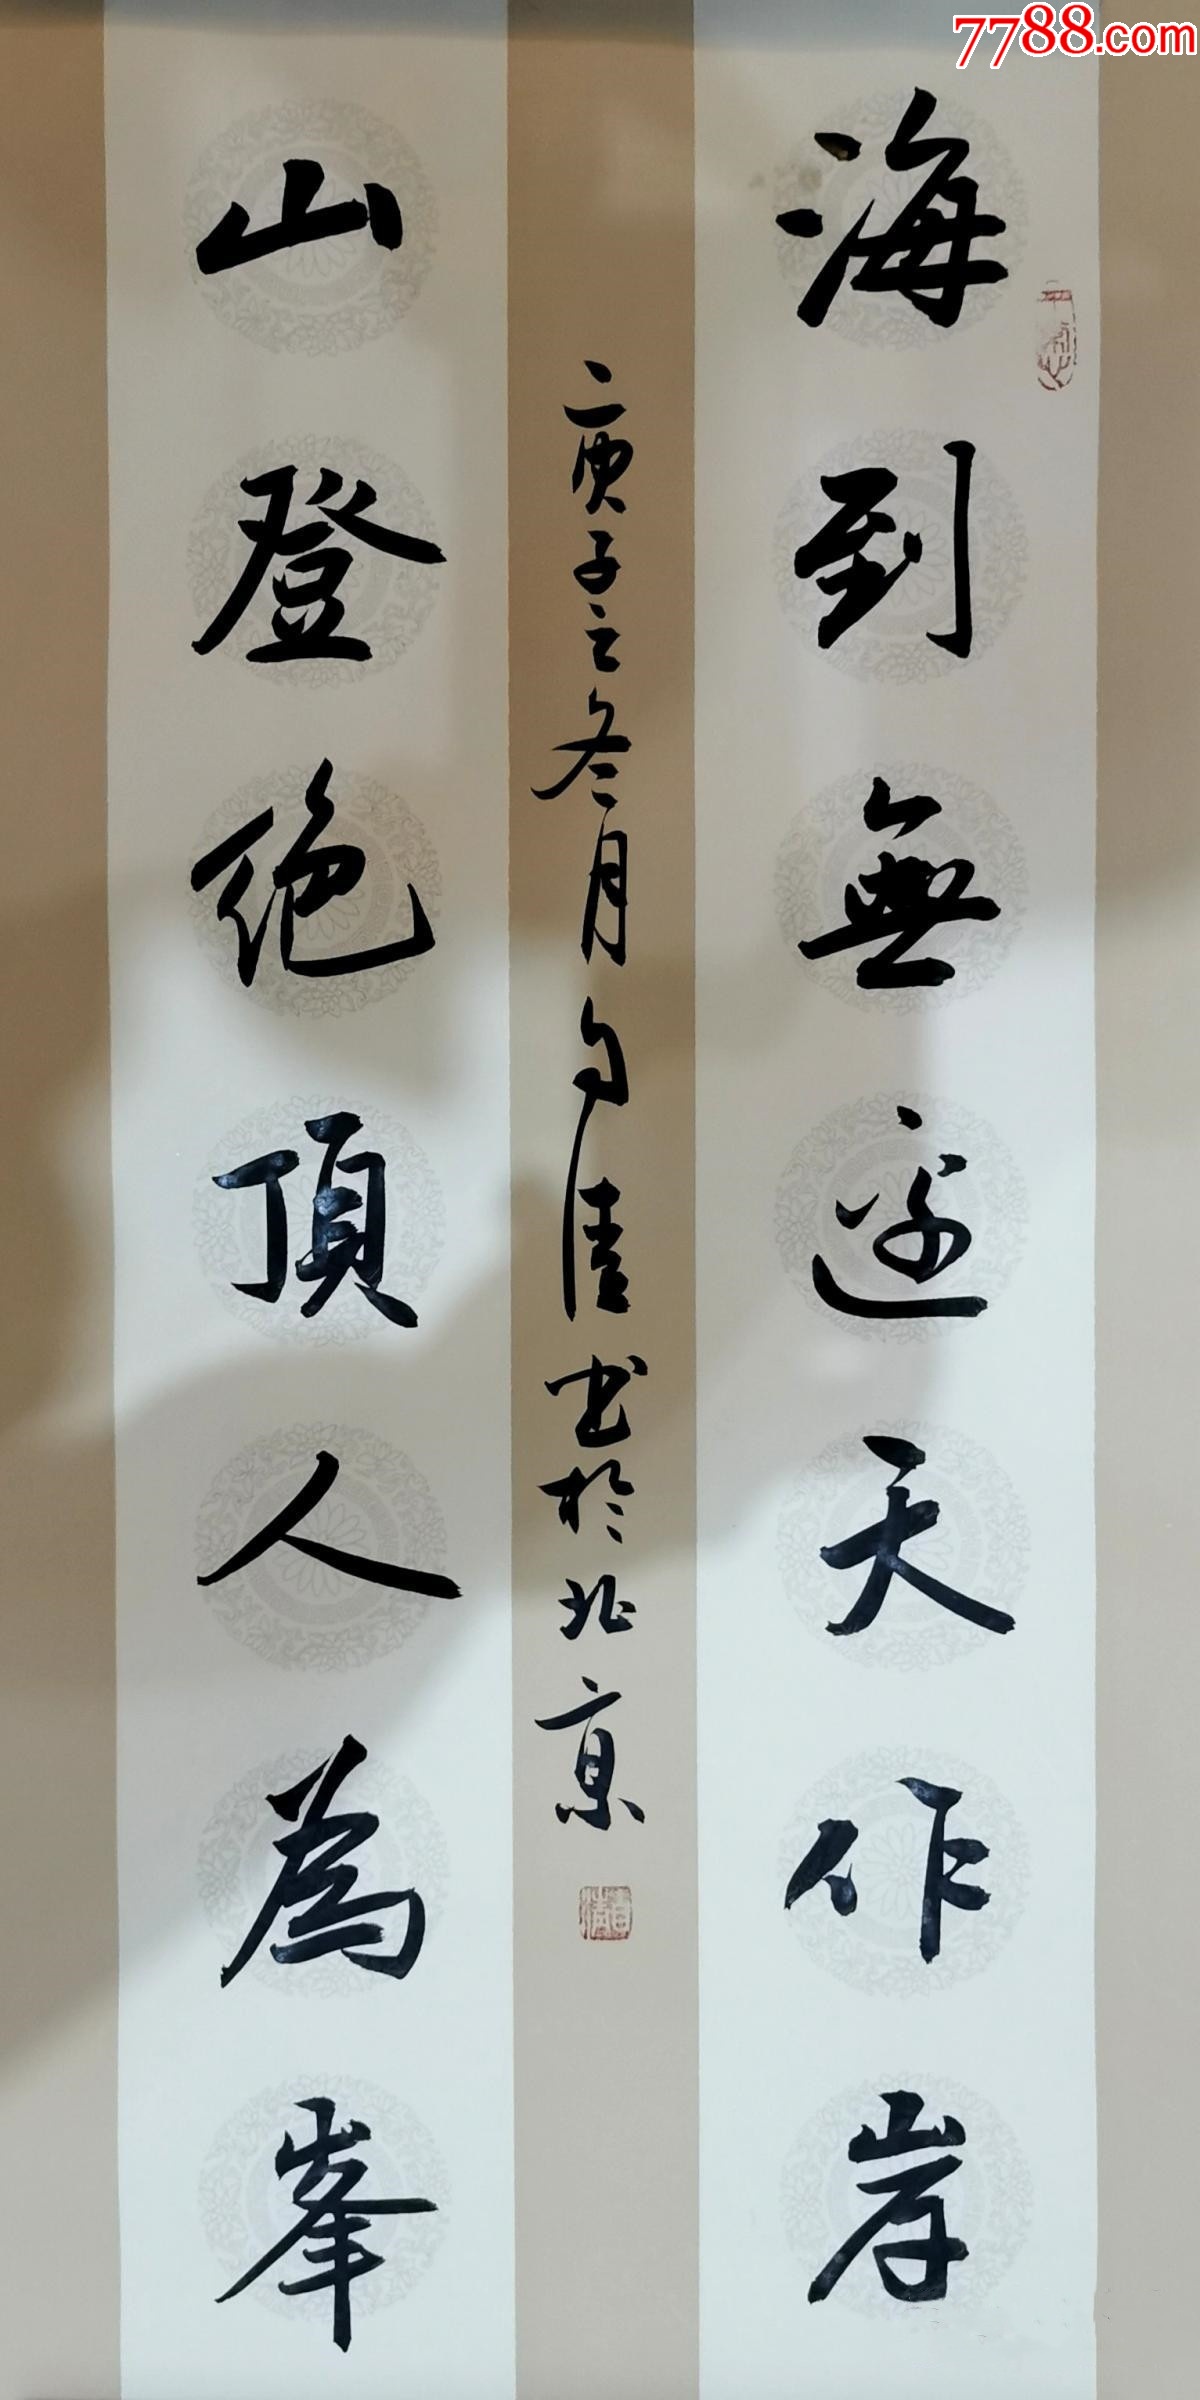 7788.com
海到無邊天作岸
山登絶頂人為峯
庚子之冬月清书於北京